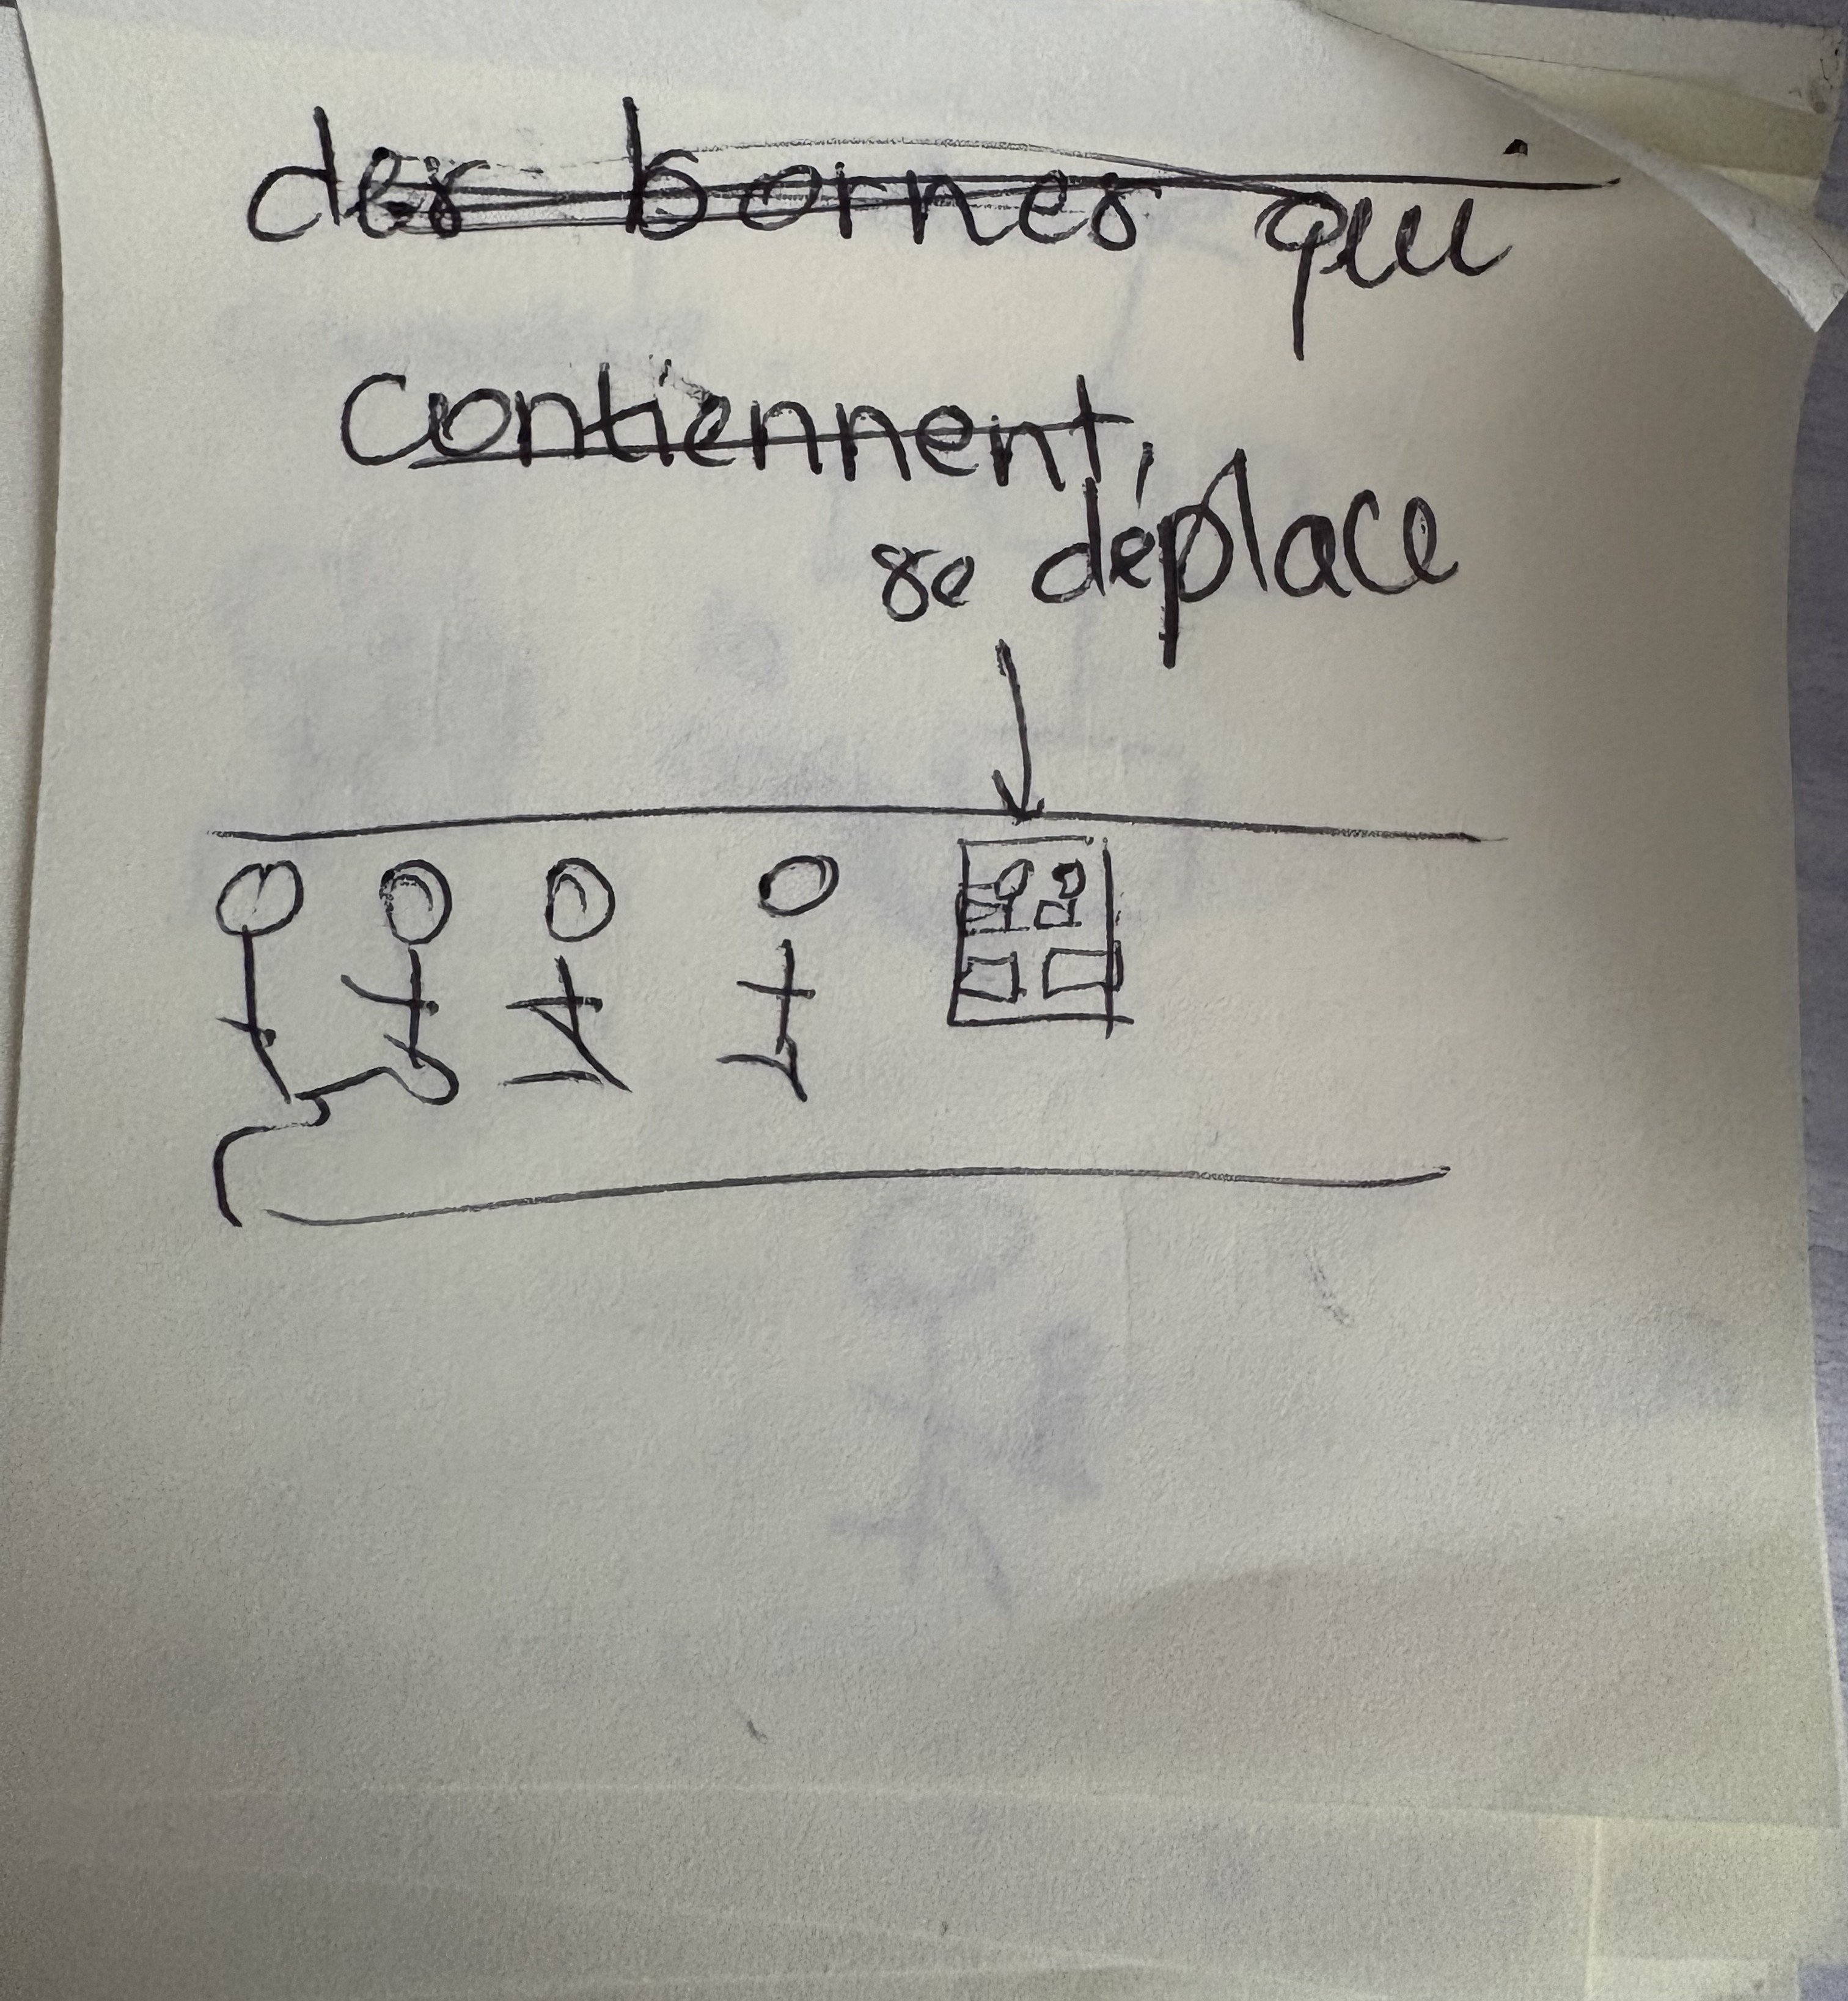 des bornes qui
contiennent,
se déplace